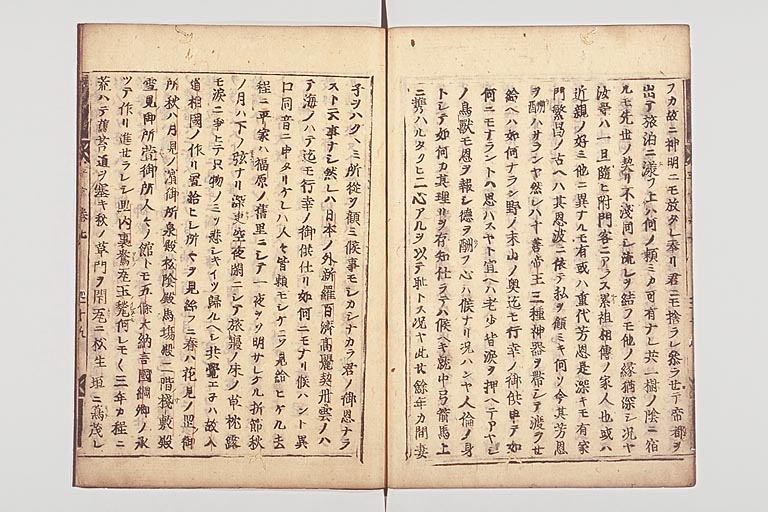 フカ故ニ神明ニモ放タレ奉リ君ニモ捨ラレ參ラせテ帝都ヲ
出テ旅泊ニ漂フ上ハ何ノ頼ミカ可有ナレ共一樹ノ陰ニ宿
ルモ先世ノ契リ不淺同シ流レヲ結フモ他ノ縁猶深シ况ヤ
汝等ハ一旦隨ヒ附門客ニアラス累祖相傳ノ家人也或ハ
近親ノ好ミ他ニ異ナルモ有或ハ重代芳恩是深キモ有家
門繁昌ノ古ヘハ其恩波ニ依テ私ヲ顧ミキ何ソ今其芳恩
ヲ酬ハサランヤ然レハ十善帝王三種神器ヲ帶シテ渡ラせ
給ヘハ如何ナラン野ノ末山ノ奥迄モ行幸ノ御供申テ如
何ニモナラント思ハスヤト宣ヘハ老少皆涙ヲ押ヘテアヤシ
ノ鳥獸モ恩ヲ報シ德ヲ酬フ心ハ候ナリ况ハンヤ人倫ノ身
トシテ如何カ其理リヲ存知仕ラテハ候ヘキ就中弓箭馬上
ニ携ハルタクヒ二心アルヲ以テ耻トス况ヤ此廿餘年カ間妻
子ヲハクヽミ所從ヲ顧ミ候事モシカシナカラ君ノ御恩ナラ
スト云事ナシ然レハ日本ノ外新羅百濟高麗契丹雲ノハ
テ海ノハテ迄モ行幸ノ御供仕リ如何ニモナリ候ハント異
口同音ニ申タリケレハ人々皆頼モシケニソ見給ヒケル去
程ニ平家ハ福原ノ舊里ニシテ一夜ヲソ明サレケル折節秋
ノ月ハ下ノ弦ナリ深更空夜閑ニシテ旅寢ノ床ノ草枕露
モ涙ニ爭ヒテ只物ノミソ悲シキイツ歸ルヘシ共覺エ子ハ故入
道相國ノ作リ置給ヒシ所々ヲ見給フニ春ハ花見ノ岡御
所秋ハ月見ノ濱御所泉殿松陰殿馬塲殿二階棧敷殿
雪見御所萱御所人々ノ館トモ五條大納言國綱卿ノ承
ツテ作リ進せラレシ里内裏鴦瓦玉甃何レモ〱三年カ程ニ
荒ハテ舊苔道ヲ塞キ秋ノ草門ヲ閉瓦ニ松生垣ニ蔦茂レ